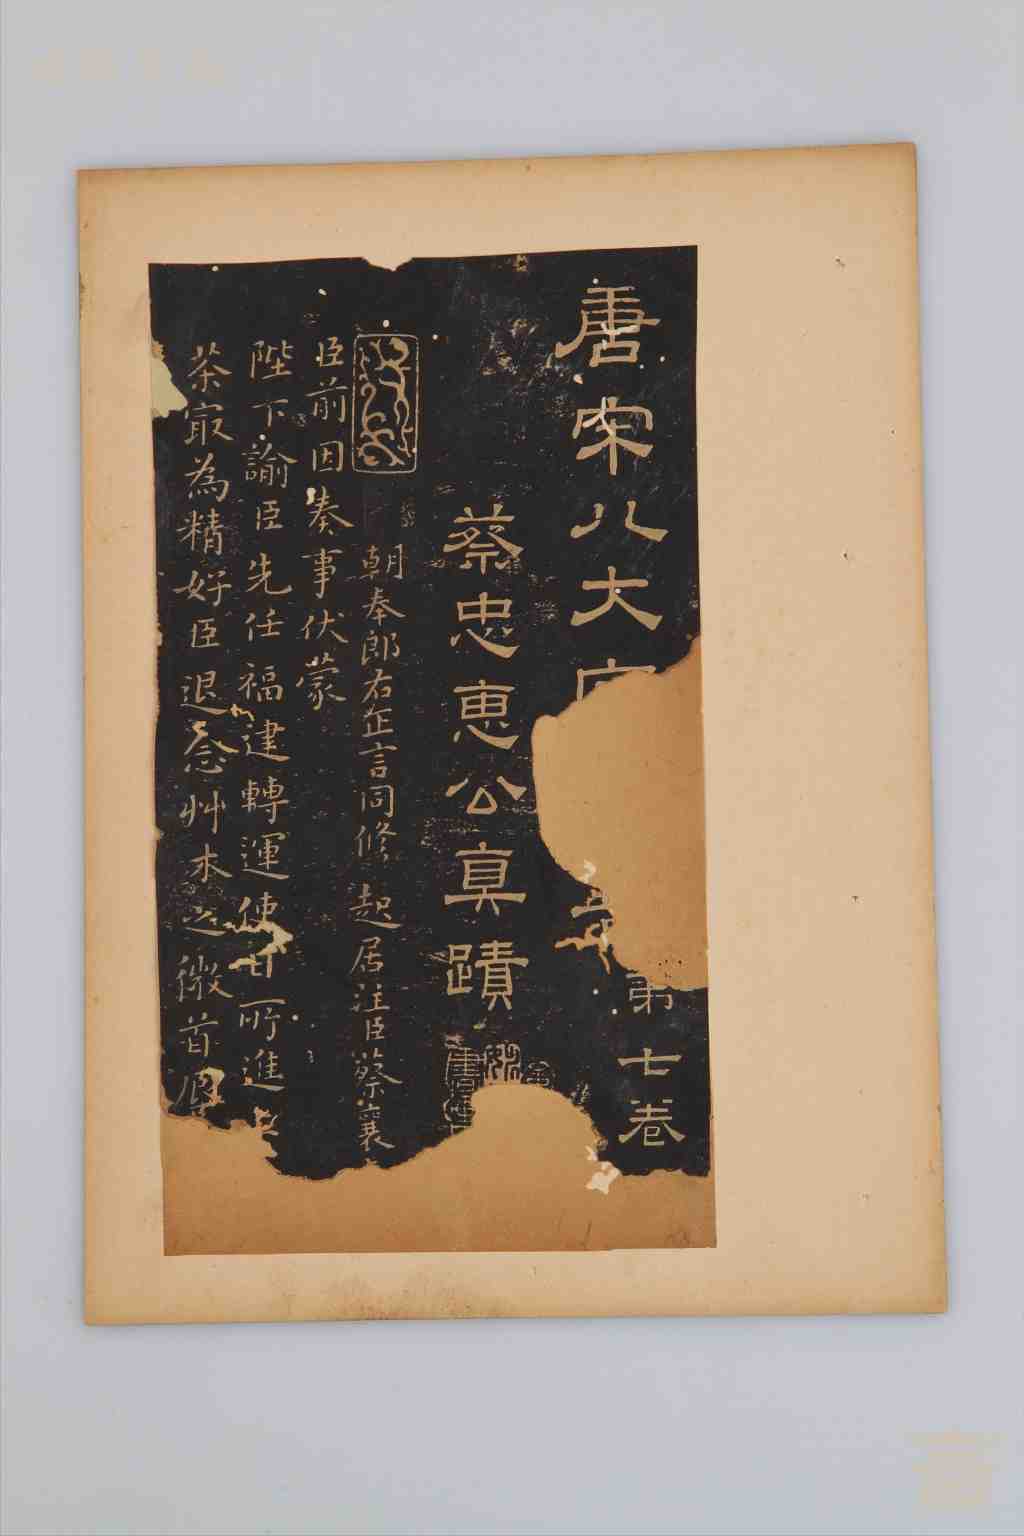 唐宋八大家
第七卷
蔡忠惠公真蹟
朝奉郎右正言同修起居注臣蔡襄
臣前因奏事伏蒙
陛下諭臣先任福建轉運使日所進上
茶冣為精好臣退念艸木之微首辱